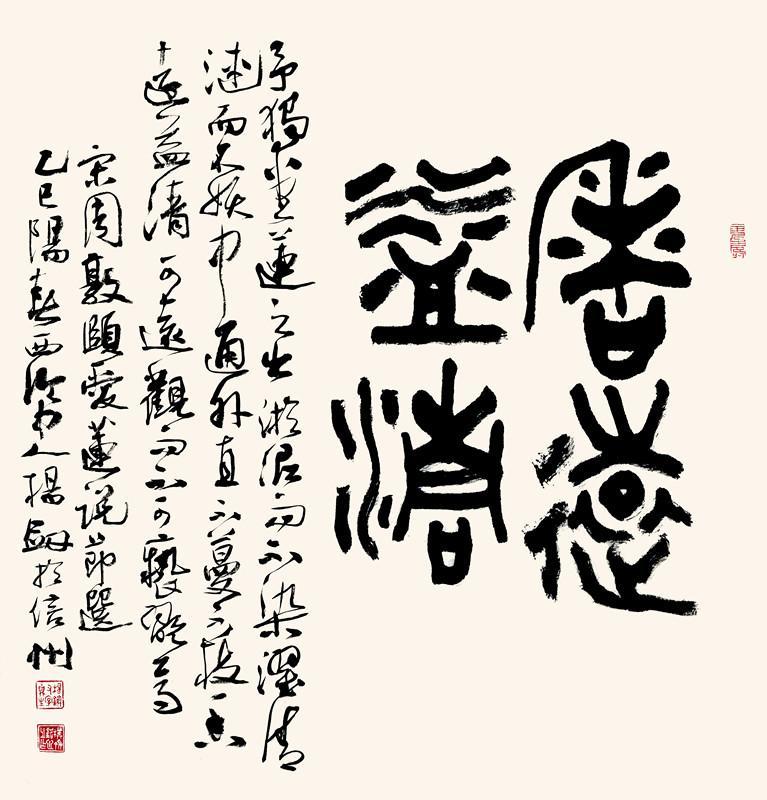 香遠
益清
予獨愛蓮之出淤泥而不染濯清
漣而不妖中通外直不蔓不枝香
遠益清可遠觀而不可褻翫焉
宋周敦頤愛蓮說節選
乙巳陽春西泠人楊劍於信州